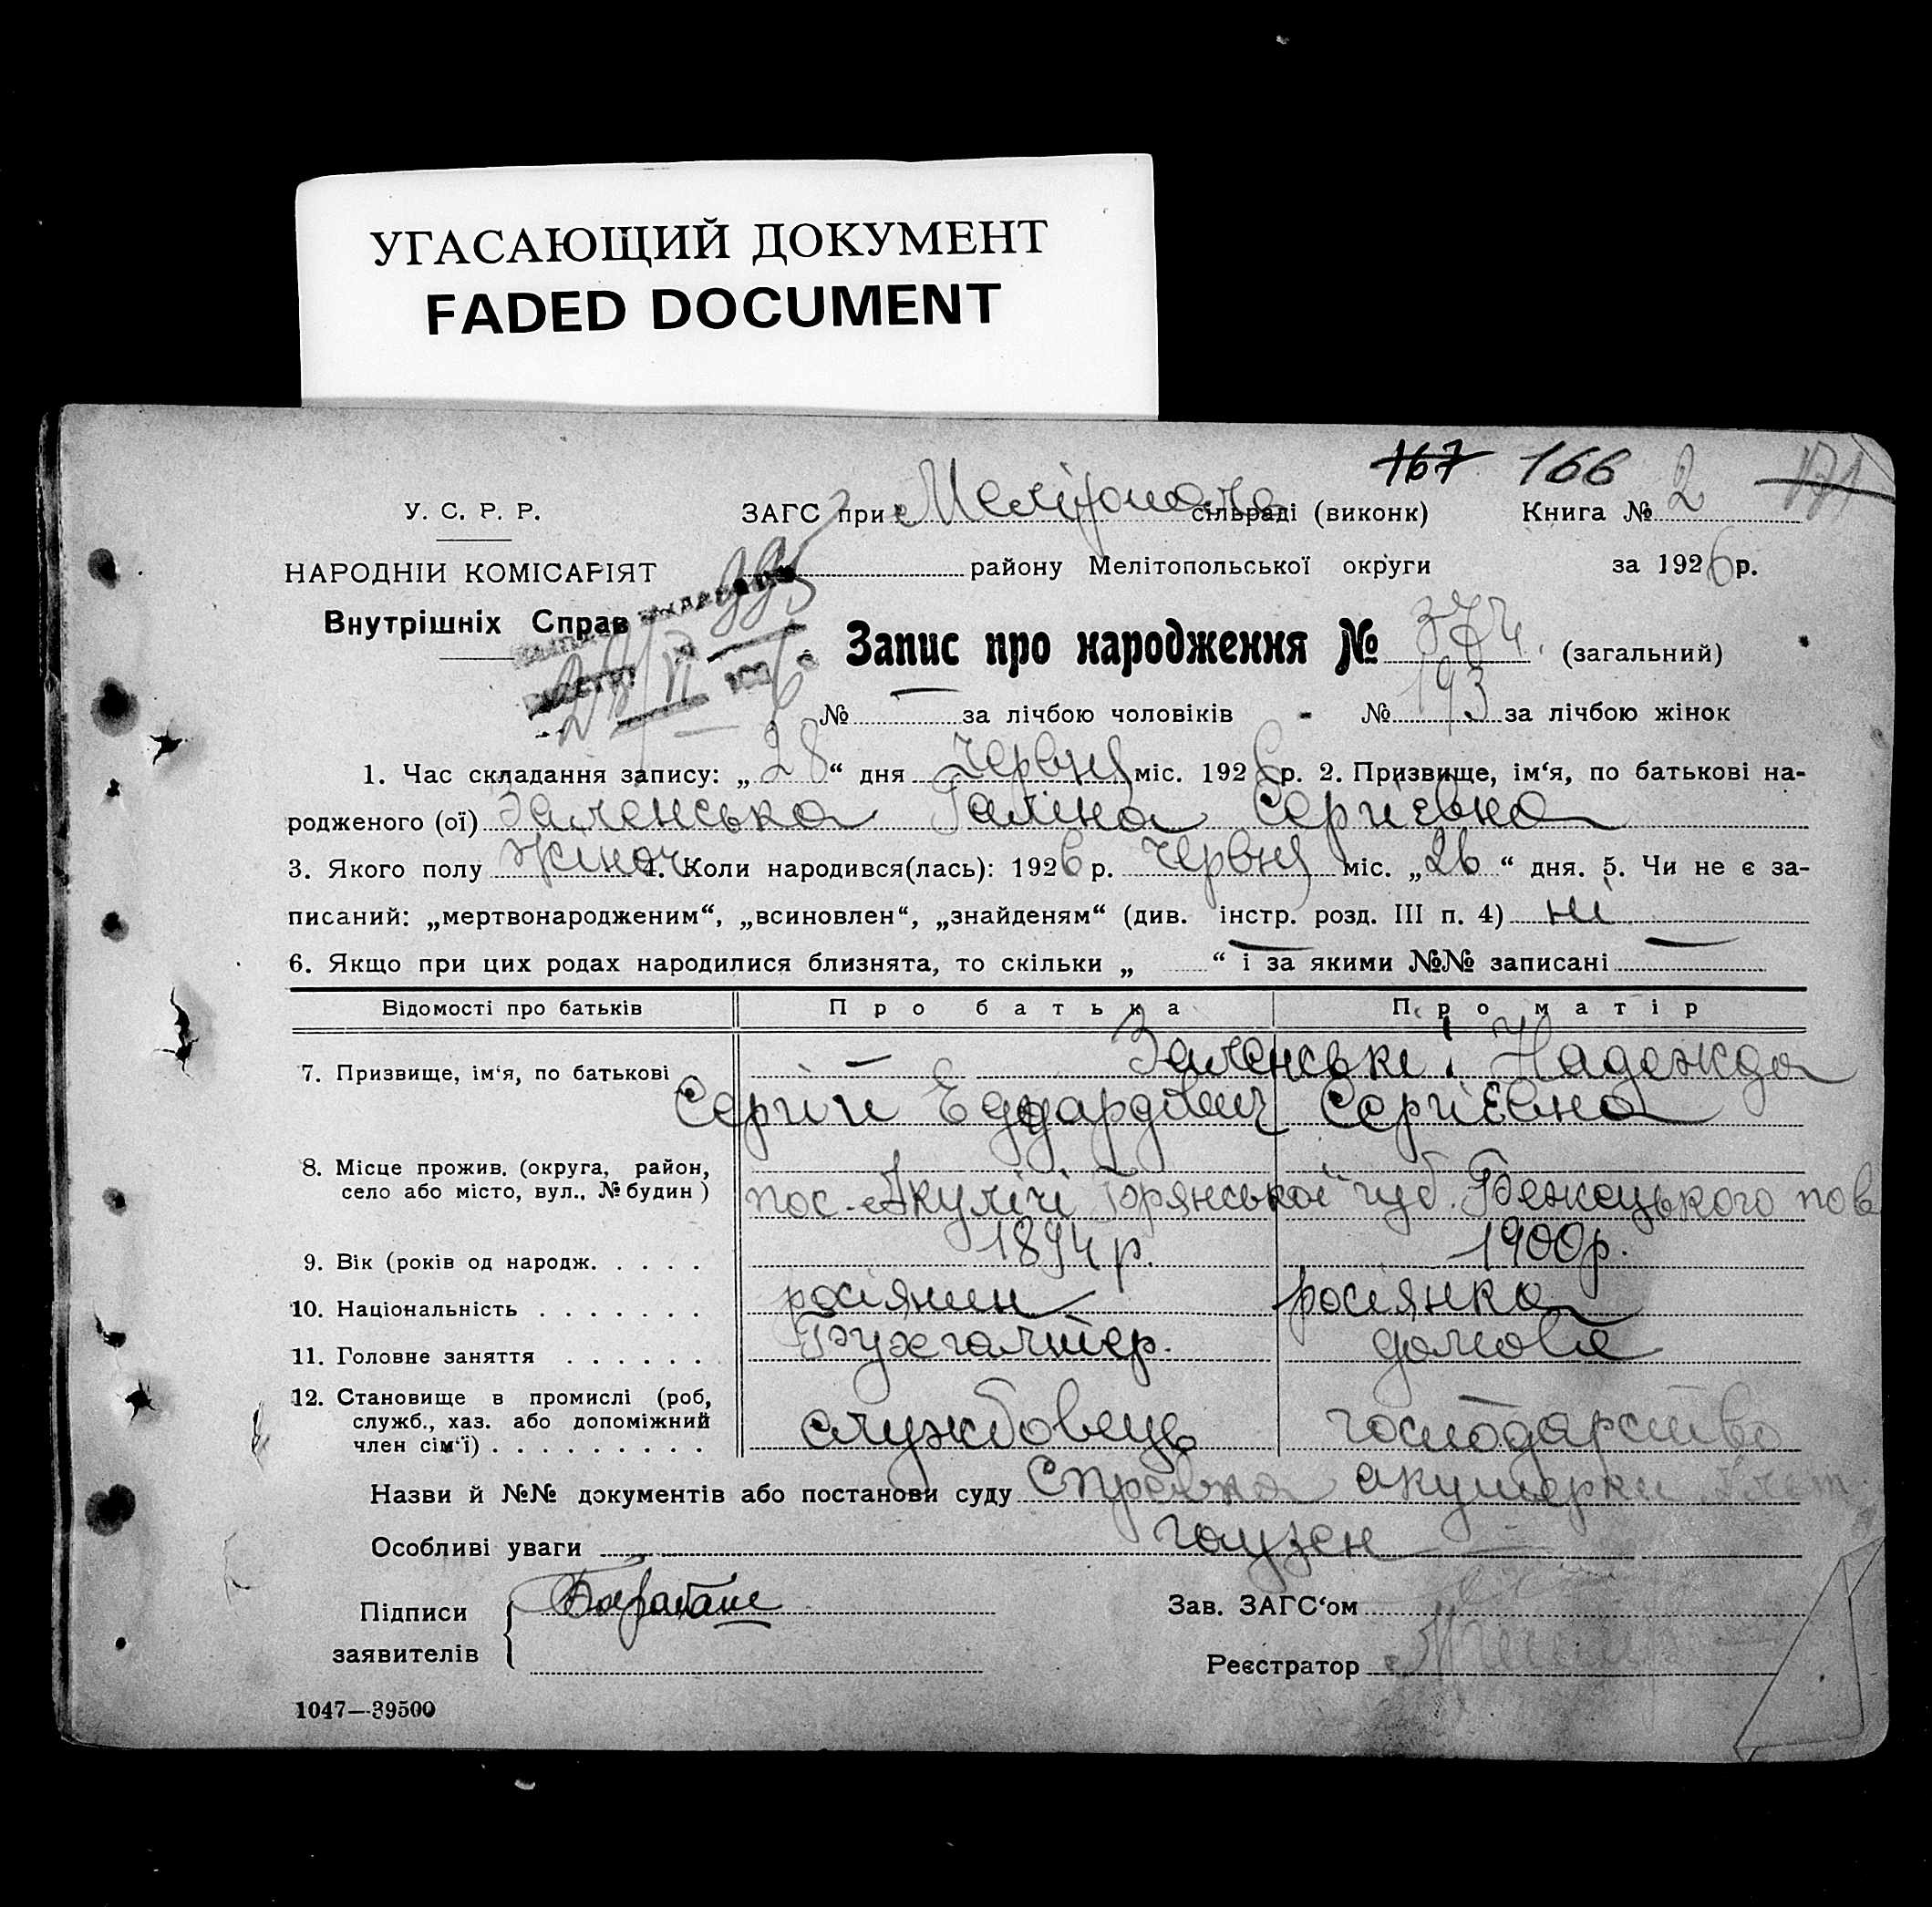 УГАСАЮЩИЙ ДОКУМЕНТ
FADED DOCUMENT
167 166 171
У. С. Р. Р. ЗАГС при сільраді (виконк) Книга № 2
НАРОДНІЙ КОМІСАРІЯТ району Мелітопольської округи за 1926 р.
Внутрішніх Справ
995
28 VI
Запис про народження № 374 (загальний)
№ — за лічбою чоловіків - № 193 за лічбою жінок
1. Час складання запису: „28“ дня Червня міс. 1926 р. 2. Призвище, ім‘я, по батькові на-
родженого (ої) Заленська Галіна Сергієвна
3. Якого полу жіноч 4. Коли народився(лась): 1926 р. Червня міс. „26“ дня. 5. Чи не є за-
писаний: „мертвонародженим“, „всиновлен“, „знайденям“ (див. інстр. розд. III п. 4) ні
6. Якщо при цих родах народилися близнята, то скільки „ — “ і за якими №№ записані —
Відомості про батьків Про батька Про матір
7. Призвище, ім‘я, по батькові — Заленські Надежда
Сергій Едуардович Сергієвна
8. Місце прожив. (округа, район,
село або місто, вул., № будин ) пос. Акулічі Брянської губ. Бежецького пов
9. Вік (років од народж. . . . . 1894 р. 1900 р.
10. Національність . . . . . . . росіянин росіянка
11. Головне заняття . . . . . . Бухгалтер. домове
12. Становище в промислі (роб,
служб., хаз. або допоміжний
член сім‘ї) . . . . . . . . . службовець господарство
Назви й №№ документів або постанови суду Справка акушерки
Особливі уваги гаузен
Підписи
заявителів
Зав. ЗАГС‘ом
Реєстратор
1047—39500